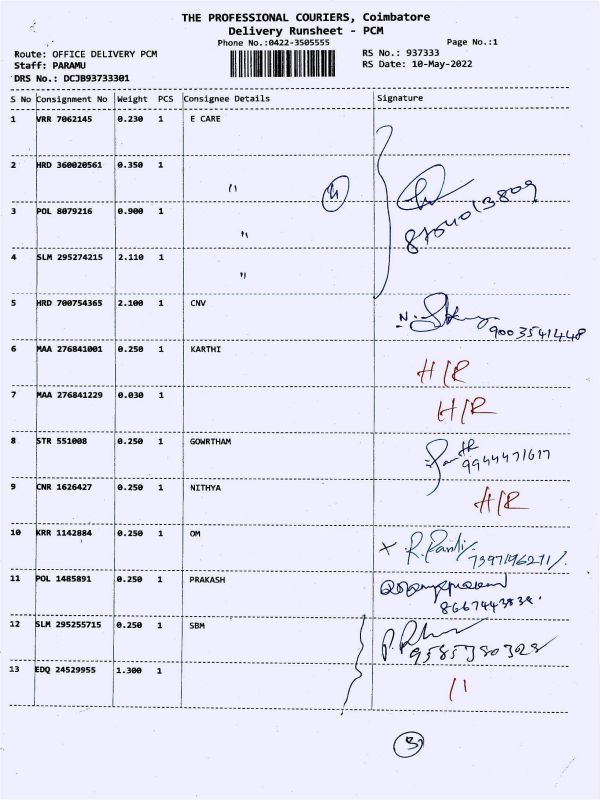 THE PROFESSIONAL COURIERS, Coimbatore
Delivery Runsheet - PCM
Phone No.:0422-3505555 Page No.:1
Route: OFFICE DELIVERY PCM RS No.: 937333
Staff: PARAMU RS Date: 10-May-2022
DRS No.: DCJB93733301
S No Consignment No Weight PCS Consignee Details Signature
1 VRR 7062145 0.230 1 E CARE
2 HRD 360020561 0.350 1 "
3 POL 8079216 0.900 1 "
4 SLM 295274215 2.110 1 "
5 HRD 700754365 2.100 1 CNV
9003541448
6 MAA 276841001 0.250 1 KARTHI H/R
7 MAA 276841229 0.030 1 H/R
8 STR 551008 0.250 1 GOWRTHAM
9944471617
9 CNR 1626427 0.250 1 NITHYA H/R
10 KRR 1142884 0.250 1 OM
7397196271/.
11 POL 1485891 0.250 1 PRAKASH
12 SLM 295255715 0.250 1 SBM
9585380328
13 EDQ 24529955 1.300 1 11